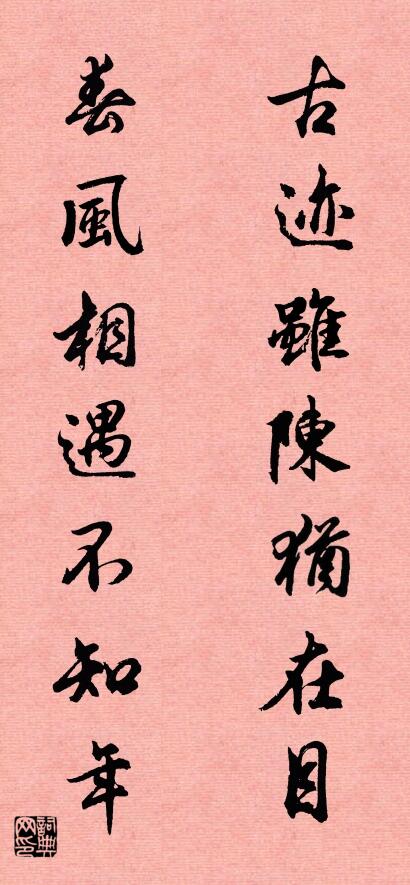 古迹雖陳猶在目
春風相遇不知年
詞典網印